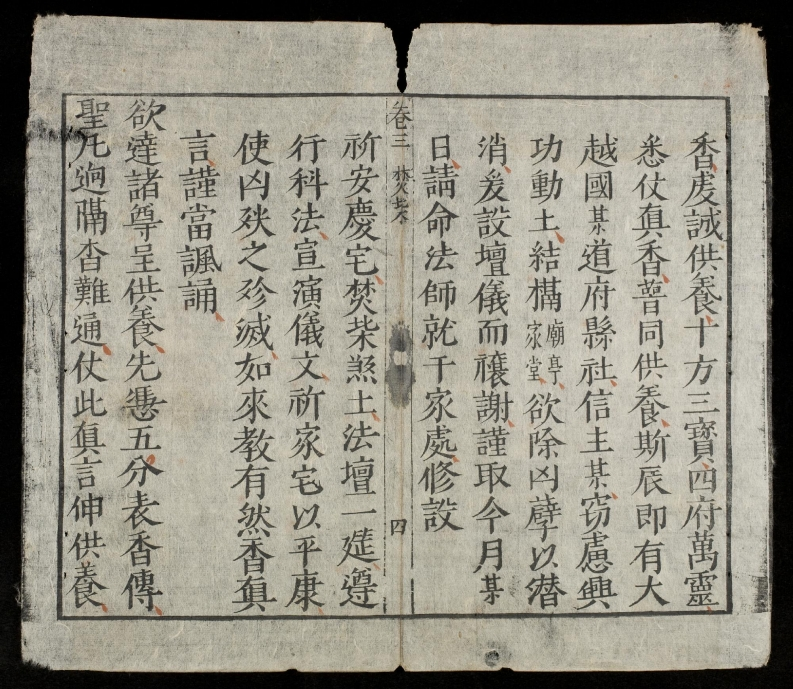 香虔誠供養十方三寶四府萬靈
悉仗真香普同供養斯辰即有大
越國某道府縣社信主某窃慮興
功動土結構廟亭家堂欲除凶孽以潜
消爰設壇儀而禳謝謹取今月某
日請命法師就于家處修設
卷三 焚柴 四
祈安慶宅焚柴煞土法壇一筵遵
行科法宣演儀文祈家宅以平康
使凶殃之殄滅如來教有然香真
言謹當諷誦
欲達諸尊呈供養先憑五分表香傳
聖凡逈隔杳難通仗此真言伸供養